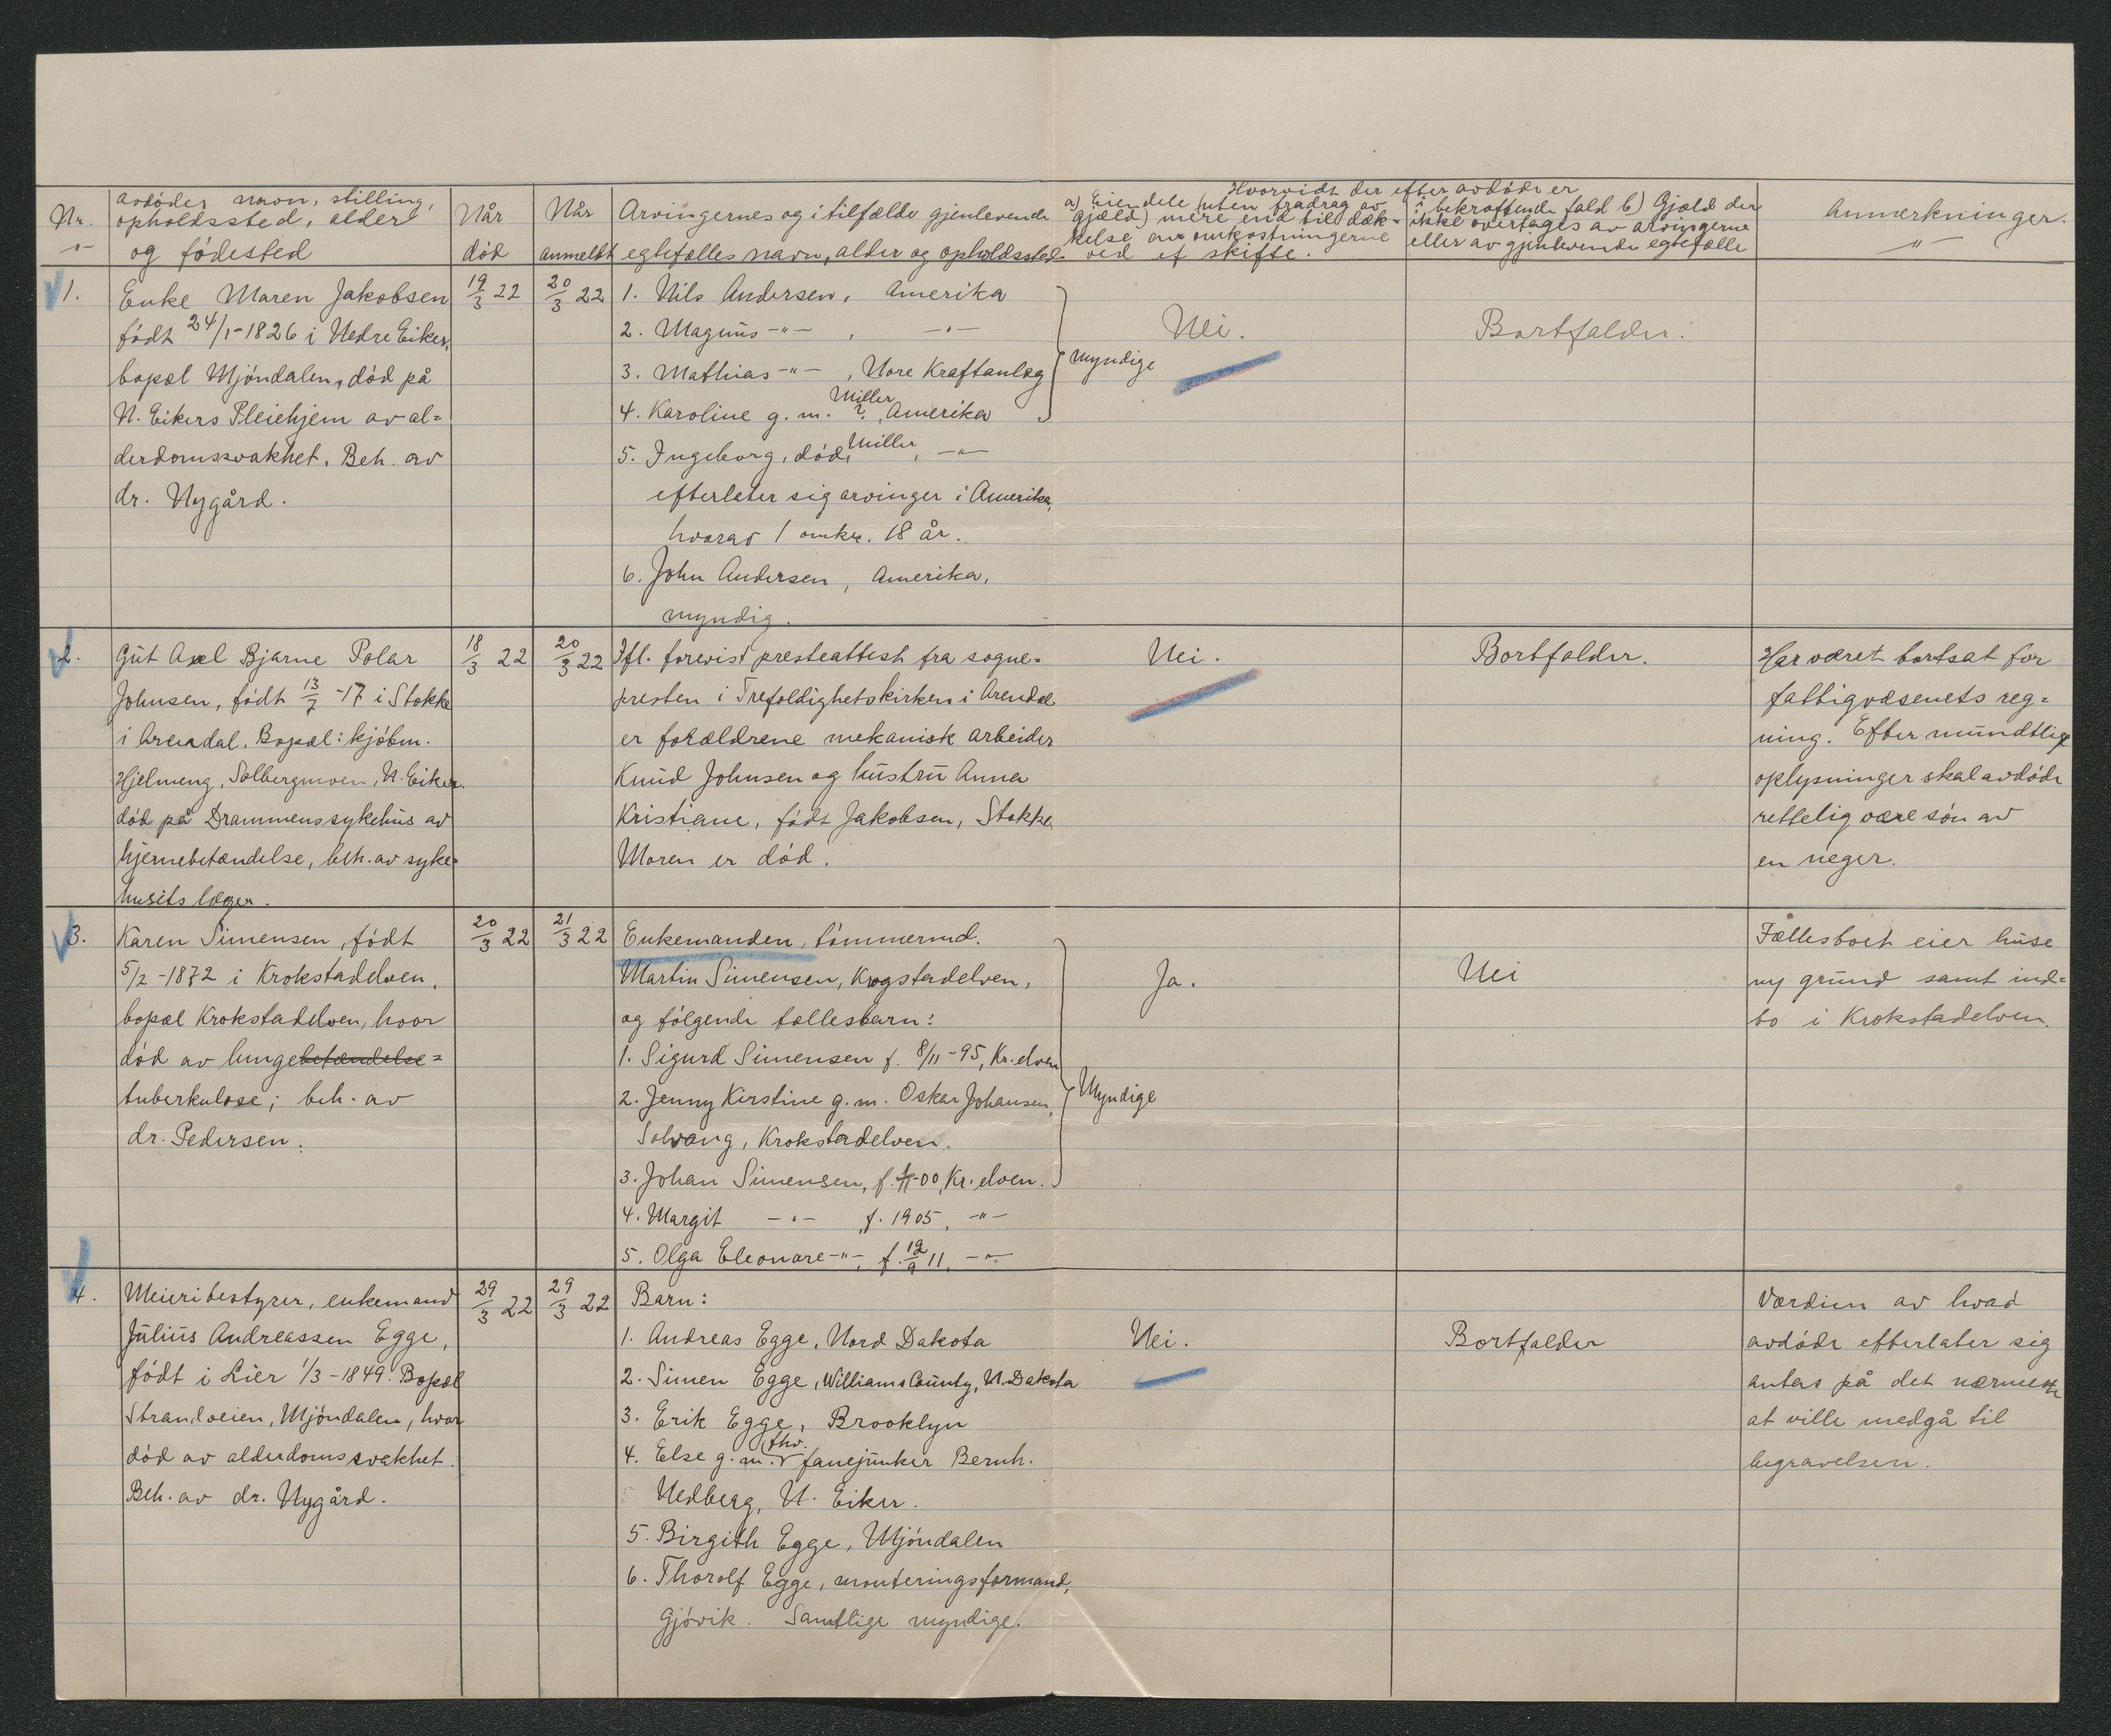 Nr.
-"-
avdødes navn, stilling,
opholdssted, alder
og fødested
Når
død
Når
anmeldt
Arvingernes og i tilfælde gjenlevende
egtefælles navn, alder og opholdssted.
Hvorvidt der efter avdøde er
a) Eiendele (uten fradrag av
gjæld) mere end til dæk-
kelse av omkostningerne
ved et skifte.
i bekræftende fald b) Gjæld der
ikke overtages av arvingerne
eller av gjenlevende egtefælle
Anmerkninger.
-"-
1.
Enke Maren Jakobsen
født 24/1-1826 i Nedre Eiker,
bopæl Mjöndalen, död på
N. Eikers Pleiehjem av al=
derdomssvakhet. Beh. av
dr. Nygård.
19/3 22
20/3 22
1. Nils Andersen, Amerika
2. Magnus -"- , -"-
3. Mathias -"- , Nore Kraftanlæg
4. Karoline g. m. ? Miller, Amerika
5. Ingeborg, død, Miller, -"-
efterlater sig arvinger i Amerika,
hvorav 1 omkr. 18 år.
6. John Andersen, Amerika,
myndig.
Myndige
Nei.
Bortfalder.
2.
Gut Axel Bjarne Polar
Johnsen, født 13/7 -17 i Stokke
i Arendal. Bopæl: kjøbm.
Hjelmeng, Solbergmoen, N. Eiker.
død på Drammens sykehus av
hjernebetændelse, beh. av syke=
husets læger.
18/3 22
20/3 22
Ifl. forevist presteattest fra sogne-
presten i Trefoldighetskirken i Arendal
er forældrene mekanisk arbeider
Knud Johnsen og hustru Anna
Kristiane, født Jakobsen, Stokke
Moren er død.
Nei.
Bortfalder.
Har været bortsat for
fattigvæsenets reg=
ning. Efter mundtlige
oplysninger skal avdøde
rettelig være søn av
en neger.
3.
Karen Simensen, født
5/2 -1872 i Krokstadelven,
bopæl Krokstadelven, hvor
død av lungebetændelse=
tuberkulose; beh. av
dr. Pedersen.
20/3 22
21/3 22
Enkemanden, tømmermd.
Martin Simensen, Krogstadelven,
og følgende fællesbarn:
1. Sigurd Simensen f. 8/11-95, Kr.elven
2. Jenny Kirstine g. m. Oskar Johansen,
Solvang, Krokstadelven.
3. Johan Simensen, f. -00, Kr. elven.
4. Margit -"- , f. 1905, -"-
5. Olga Eleonare -"-, f. 19/9 11, -"-
Myndige
Ja.
Nei
Fællesboet eier huse
ny grund samt ind=
bo i Krokstadelven.
4.
Meieribestyrer, enkemand
Julius Andreassen Egge,
født i Lier 1/3-1849. Bopæl
Strandveien, Mjöndalen, hvor
død av alderdomssvakhet.
Beh. av dr. Nygård.
29/3 22
29/3 22
Barn:
1. Andreas Egge, Nord Dakota
2. Simen Egge, Williams County, N. Dakota
3. Erik Egge, Brooklyn
4. Else g. m. fhv. fanejunker Bernh.
Nedberg, N. Eiker.
5. Birgith Egge, Mjöndalen
6. Thorolf Egge, monteringsformand,
Gjövik. Samtlige myndige.
Nei.
Bortfalder
Værdien av hvad
avdøde efterlater sig
antas på det nærmeste
at ville medgå til
begravelsen.